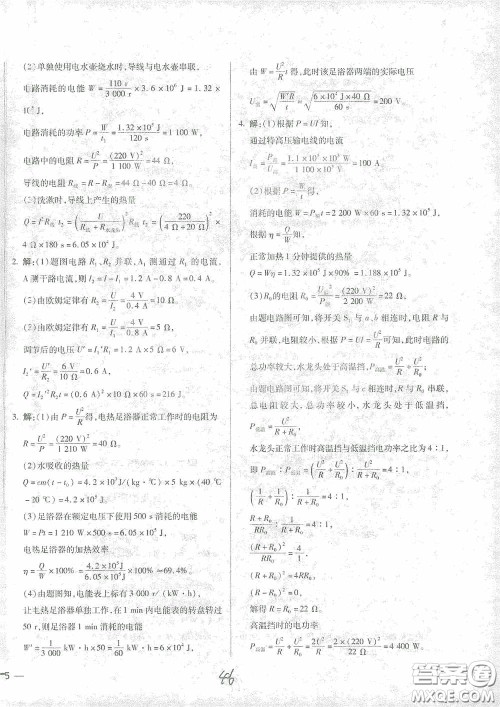 (2)单独使用电水壶烧水时,导线与电水壶串联,
电路消耗的电能 W=110 r/3 000 r×3.6×10⁶ J=1.32×10⁵ J,
电路消耗的功率 P=W/t₁=1.32×10⁵ J/120 s=1 100 W,
电路中的电阻 R=U²/P=(220 V)²/1 100 W=44 Ω,
导线的电阻 R线=R-R壶=44 Ω-40 Ω=4 Ω。
(3)洗漱时,导线上产生的热量
4 Ω×180 s=6.05×10⁵ J。
解:(1)题图电路 R₁、R₂ 并联,A₁ 测通过 R₁ 的电流,
A 测干路电流,则 I₂=I-I₁=1.2 A-0.8 A=0.4 A。
(2)由欧姆定律有 R₂=U/I₂=4 V/0.4 A=10 Ω。
调节后的电压 U'=I₁'R₁=1.2 A×5 Ω=6 V,
I₂'=U'/R₂=6 V/10 Ω=0.6 A,
Q=I₂'²R₂t=(0.6 A)²×10 Ω×60 s=216 J。
3. 解:(1)由 P=U²/R得,电热足浴器正常工作时的电阻为
(2)水吸收的热量
Q=cm(t-t₀)=4.2×10³J/(kg·℃)×5 kg×(40℃
-20℃)=4.2×10⁵ J。
(3)足浴器在额定电压下使用500 s消耗的电能
电热足浴器的加热效率
η=Q/W×100%=4.2×10⁵J/6.05×10⁵J×100%≈69.4%。
(4)由题图知,电能表上标有3 000 r/(kW·h),
让电热足浴器单独工作,在1 min内电能表的转盘转过
50 r,则足浴器消耗的电能
W'=1/3 000 kW·h×50=1/60 kW·h=6×10⁴ J,
由 W=U²/R t得,此时该足浴器两端的实际电压
U实=√W'R/t=√6×10⁴J×40 Ω/60 s=200 V。
4. 解:(1)根据 P=UI知,
通过特高压输电线的电流
(2)根据 P=W/t得,
消耗的电能 W=Pt=2 200 W×60 s=1.32×10⁵ J,
根据 η=Q/W知,
正常加热1分钟提供的热量
Q=Wη=1.32×10⁵ J×90%=1.188×10⁵ J。
(3)R₀的电阻 R₀=U²/P低温=(220 V)²/2 200 W=22 Ω,
由题电路图可知,将开关 S₁ 与 a、b 相连时,电阻 R 与
R₀ 并联,电阻较小。根据 P=UI=U²/R可知,电路的
总功率较大,水龙头处于高温挡,P高温=U²/R+U²/R₀,
总功率较小,水龙头处于低温挡,
P低温=U²/R+R₀,
水龙头正常工作时高温挡与低温挡的电功率之比为4∶1,
即 P高温∶P低温=(U²/R+U²/R₀)∶U²/R+R₀=4∶1,
(1/R+1/R₀)∶1/R+R₀=4∶1,
R+R₀/RR₀∶1/R+R₀=4∶1,
(R+R₀)²/RR₀=4,
(R+R₀)²=4RR₀
(R-R₀)²=0
解得 R=R₀=22 Ω,
高温挡时的电功率
P高温=U²/R+U²/R₀=2U²/R=2×(220 V)²/22 Ω=4 400 W。
-5-
46
答案圈
MXQE.COM